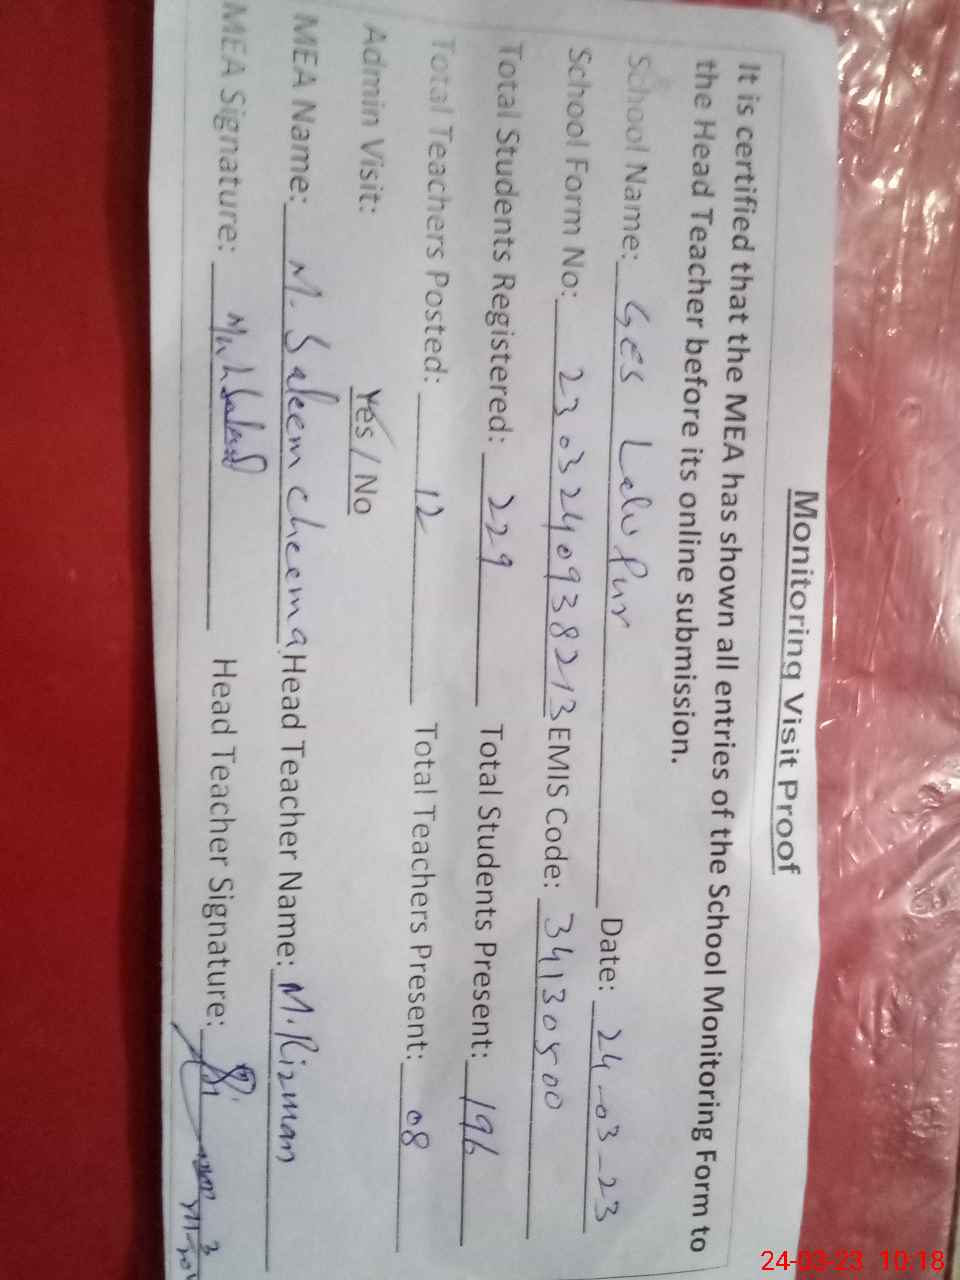 Monitoring Visit Proof
It is certified that the MEA has shown all entries of the School Monitoring Form to
the Head Teacher before its online submission.
School Name: GES Lalu Pur Date: 24-03-23
School Form No: 2303240938213 EMIS Code: 34130500
Total Students Registered: 229 Total Students Present: 196
Total Teachers Posted: 12 Total Teachers Present: 08
Admin Visit: Yes / No
MEA Name: M. Saleem cheema Head Teacher Name: M. Rizman
MEA Signature: Head Teacher Signature:
24-03-23 10:18